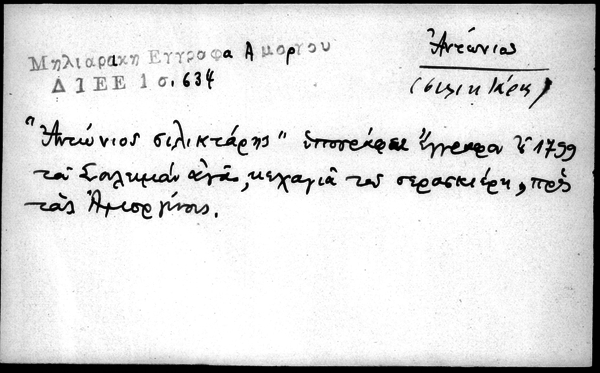 Μηλιαρακη Εγγραφα Αμοργου
Δ Ι Ε Ε 1 σ. 634
Ἀντώνιος
(σιλικτάρης)
"Ἀντώνιος σιλικτάρης" ὑπογράφει ἔγγραφον τοῦ 1799
τοῦ Σουλεϊμὰν ἀγᾶ, κεχαγιᾶ τοῦ σερασκιέρη, πρὸς
τοὺς Ἀμοργίνους.